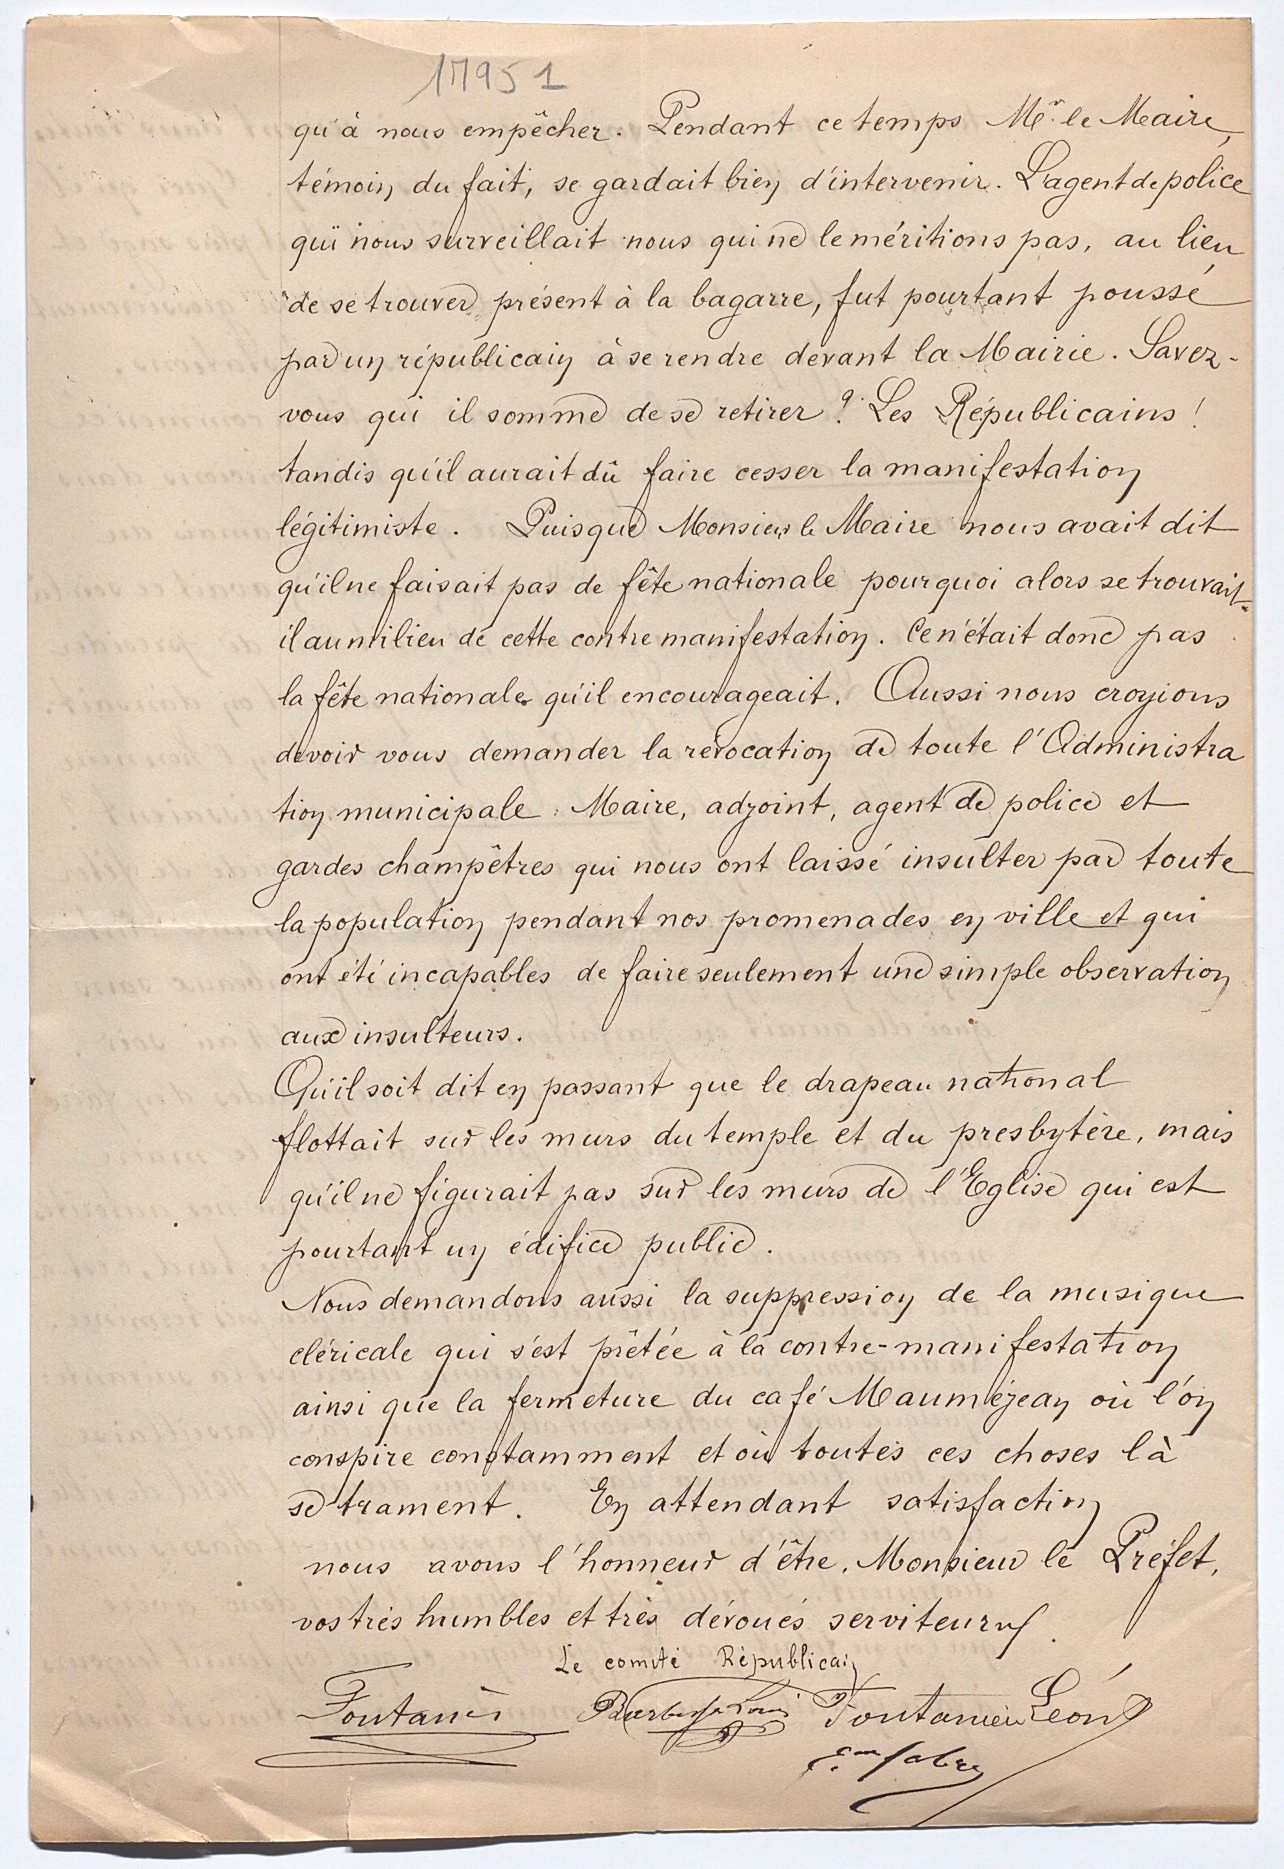 17951
qu'à nous empêcher. Pendant ce temps Mr. le Maire,
témoin du fait, se gardait bien d'intervenir. L'agent de police
qui nous surveillait nous qui ne le méritions pas, au lieu
de se trouver présent à la bagarre, fut pourtant poussé
par un républicain à se rendre devant la Mairie. Savez-
vous qui il somme de se retirer ? Les Républicains !
tandis qu'il aurait dû faire cesser la manifestation
légitimiste. Puisque Monsieur le Maire nous avait dit
qu'il ne faisait pas de fête nationale pourquoi alors se trouvait-
il au milieu de cette contre manifestation. Ce n'était donc pas
la fête nationale qu'il encourageait. Aussi nous croyions
devoir vous demander la révocation de toute l'Administra
tion municipale. Maire, adjoint, agent de police et
gardes champêtres qui nous ont laissé insulter par toute
la population pendant nos promenades en ville et qui
ont été incapables de faire seulement une simple observation
aux insulteurs.
Qu'il soit dit en passant que le drapeau national
flottait sur les murs du temple et du presbytère, mais
qu'il ne figurait pas sur les murs de l'Eglise qui est
pourtant un édifice public.
Nous demandons aussi la suppression de la musique
cléricale qui s'est prêtée à la contre-manifestation
ainsi que la fermeture du café Mauméjean où l'on
conspire constamment et où toutes ces choses là
se trament. En attendant satisfaction
nous avons l'honneur d'être, Monsieur le Préfet,
vos très humbles et très dévoués serviteurs.
Le comité Républicain
Fontanès Louis Fontanieu Léon
Fabre